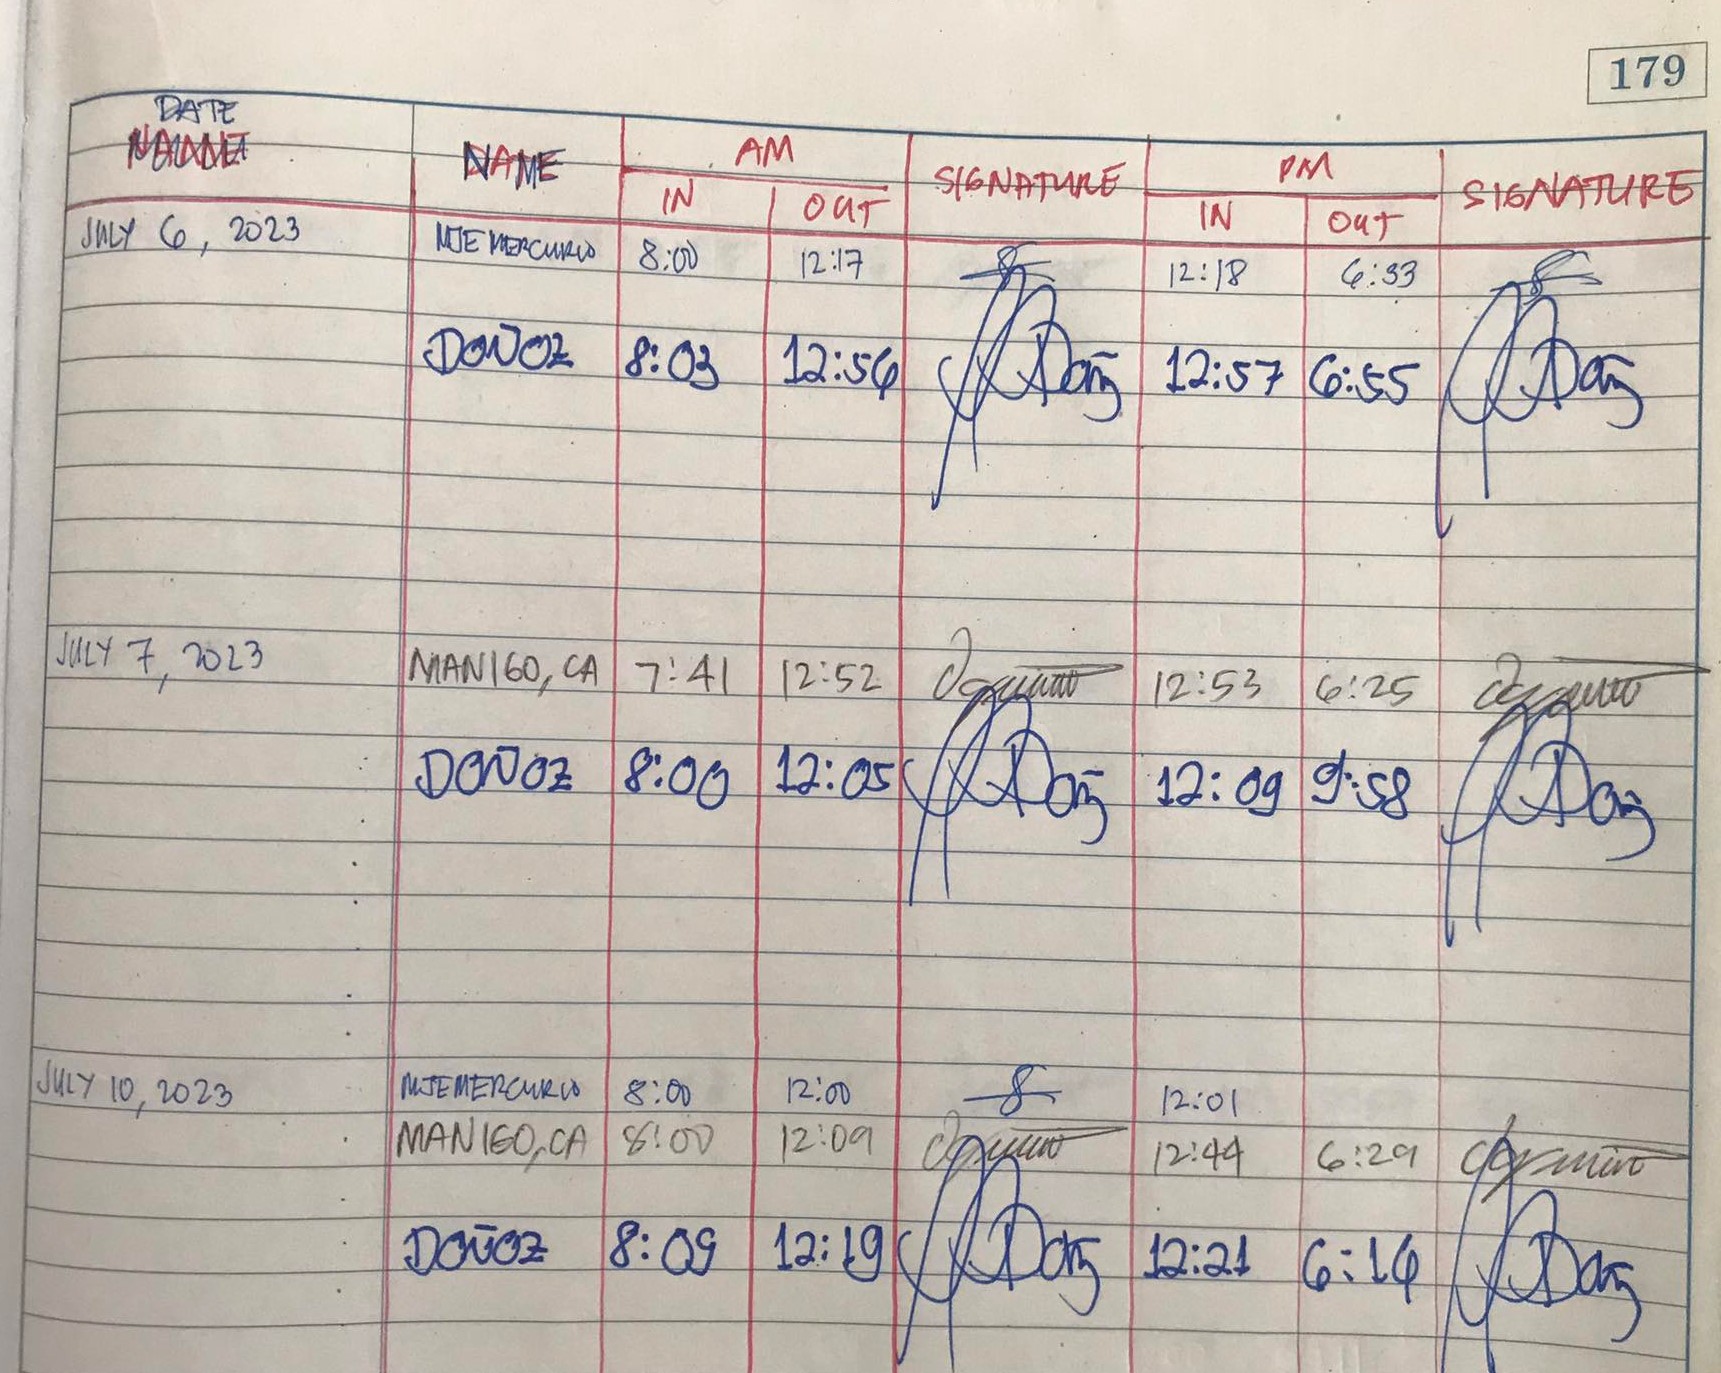 179
DATE
NAME AM SIGNATURE PM SIGNATURE
IN OUT IN OUT
JULY 6, 2023 MJEMERCURIO 8:00 12:17 12:18 6:33
DOÑOZ 8:03 12:56 12:57 6:55
JULY 7, 2023 MANIGO, CA 7:41 12:52 12:53 6:25
DOÑOZ 8:00 12:05 12:09 9:58
JULY 10, 2023 MJEMERCURIO 8:00 12:00 12:01
MANIGO, CA 8:00 12:09 12:44 6:29
DOÑOZ 8:09 12:19 12:21 6:16